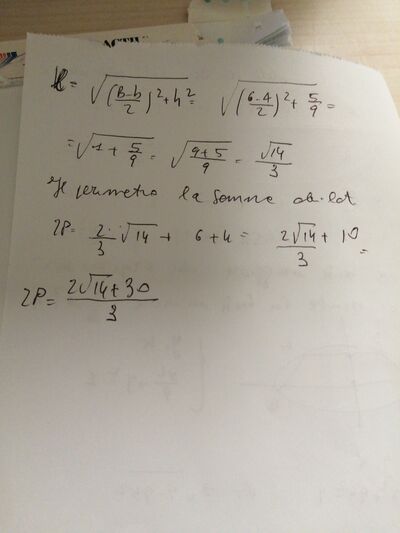 ℓ = √((B-b)/2)² + h² = √((6-4)/2)² + 5/9 =
= √1 + 5/9 = √(9+5)/9 = √14/3
Il perimetro la somma dei lati
2P = 2/3 · √14 + 6+4 = 2√14/3 + 10 =
2P = (2√14 + 30)/3